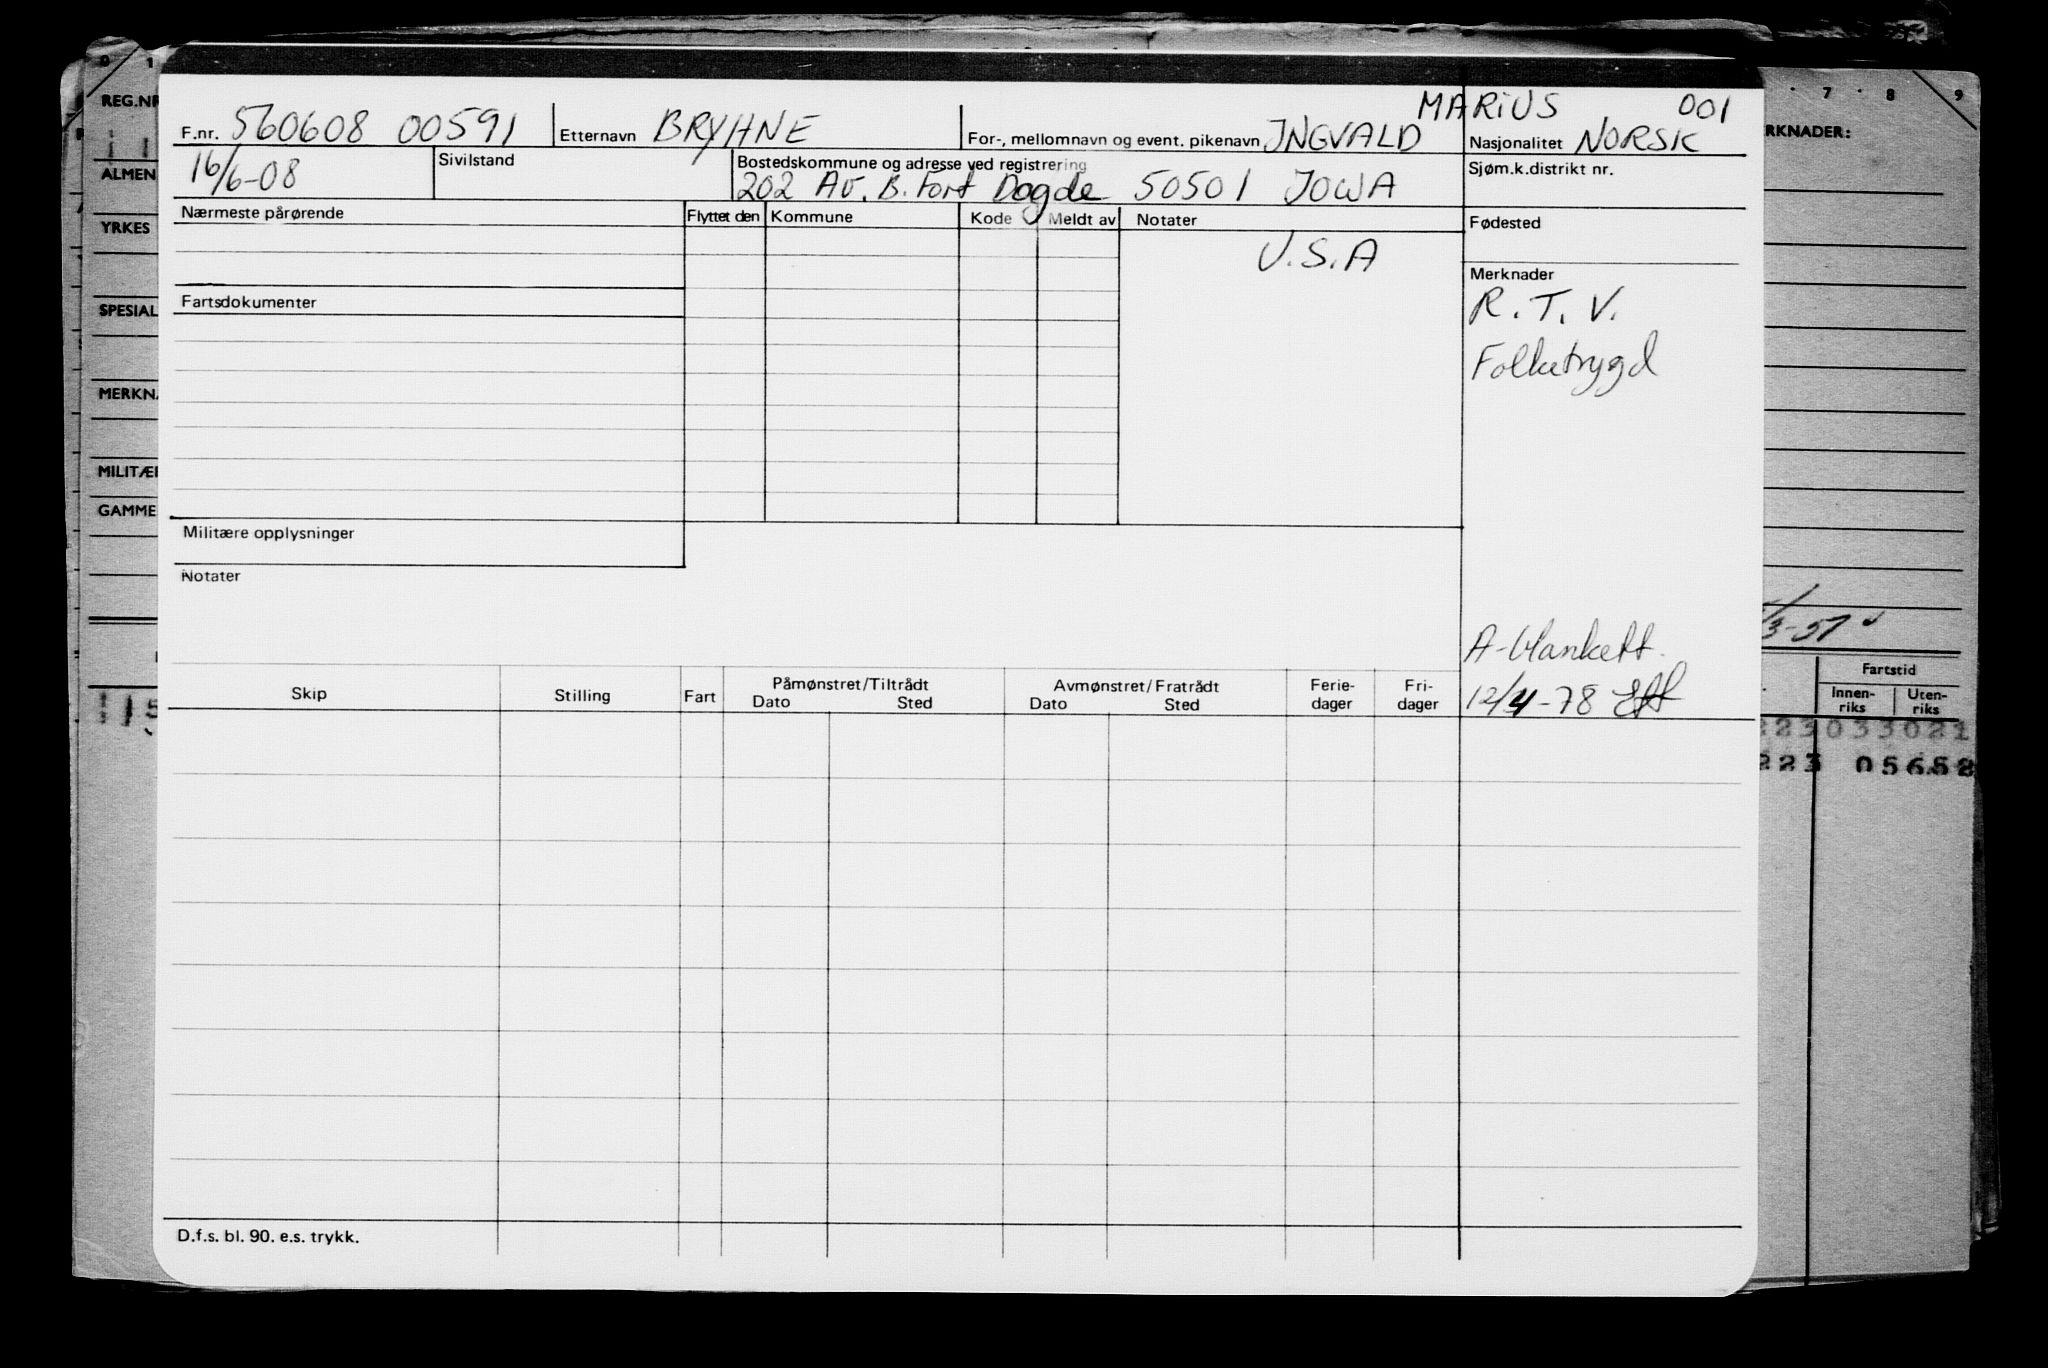 MARIUS 001
F.nr. 560608 00591 Etternavn BRYHNE For-, mellomnavn og event. pikenavn INGVALD Nasjonalitet NORSK
16/6-08 Sivilstand Bostedskommune og adresse ved registrering Sjøm.k.distrikt nr.
202 Av. B. Fort Dogde 50501 IOWA
Nærmeste pårørende Flyttet den Kommune Kode Meldt av Notater Fødested
U.S.A
Merknader
Fartsdokumenter R.T.V.
Folketrygd
Militære opplysninger
Notater
A-blankett.
12/4-78
Skip Stilling Fart Påmønstret/Tiltrådt Avmønstret/Fratrådt Ferie-dager Fri-dager
Dato Sted Dato Sted
D.f.s. bl. 90. e.s. trykk.
0 1
REG.NR
ALMEN
YRKES
SPESIAL
MERKNA
MILITÆR
GAMME
115
7 8 9
RKNADER:
/3-57
Fartstid
Innen-riks Uten-riks
223 033021
223 05652